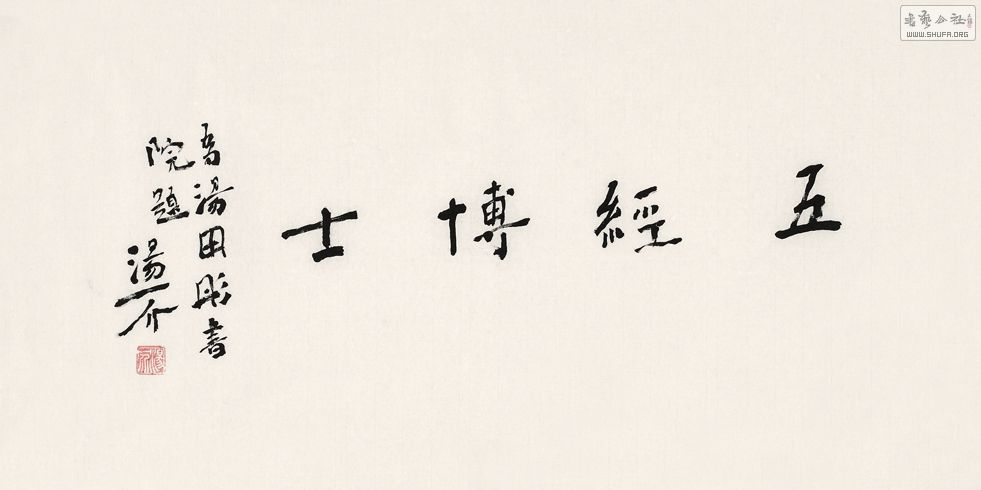 五經博士
為湯田彫書
院題
湯一介
書藝公社
WWW.SHUFA.ORG